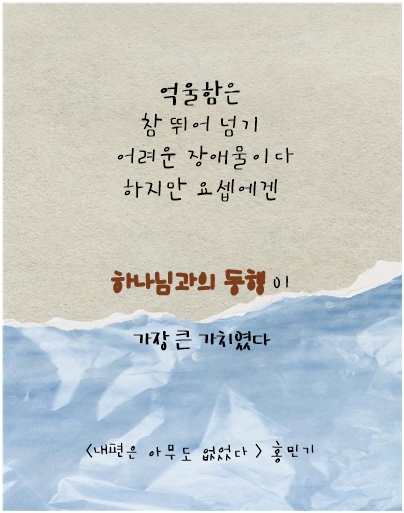 억울함은
참 뛰어 넘기
어려운 장애물이다
하지만 요셉에겐
하나님과의 동행이
가장 큰 가치였다
<내편은 아무도 없었다> 홍민기